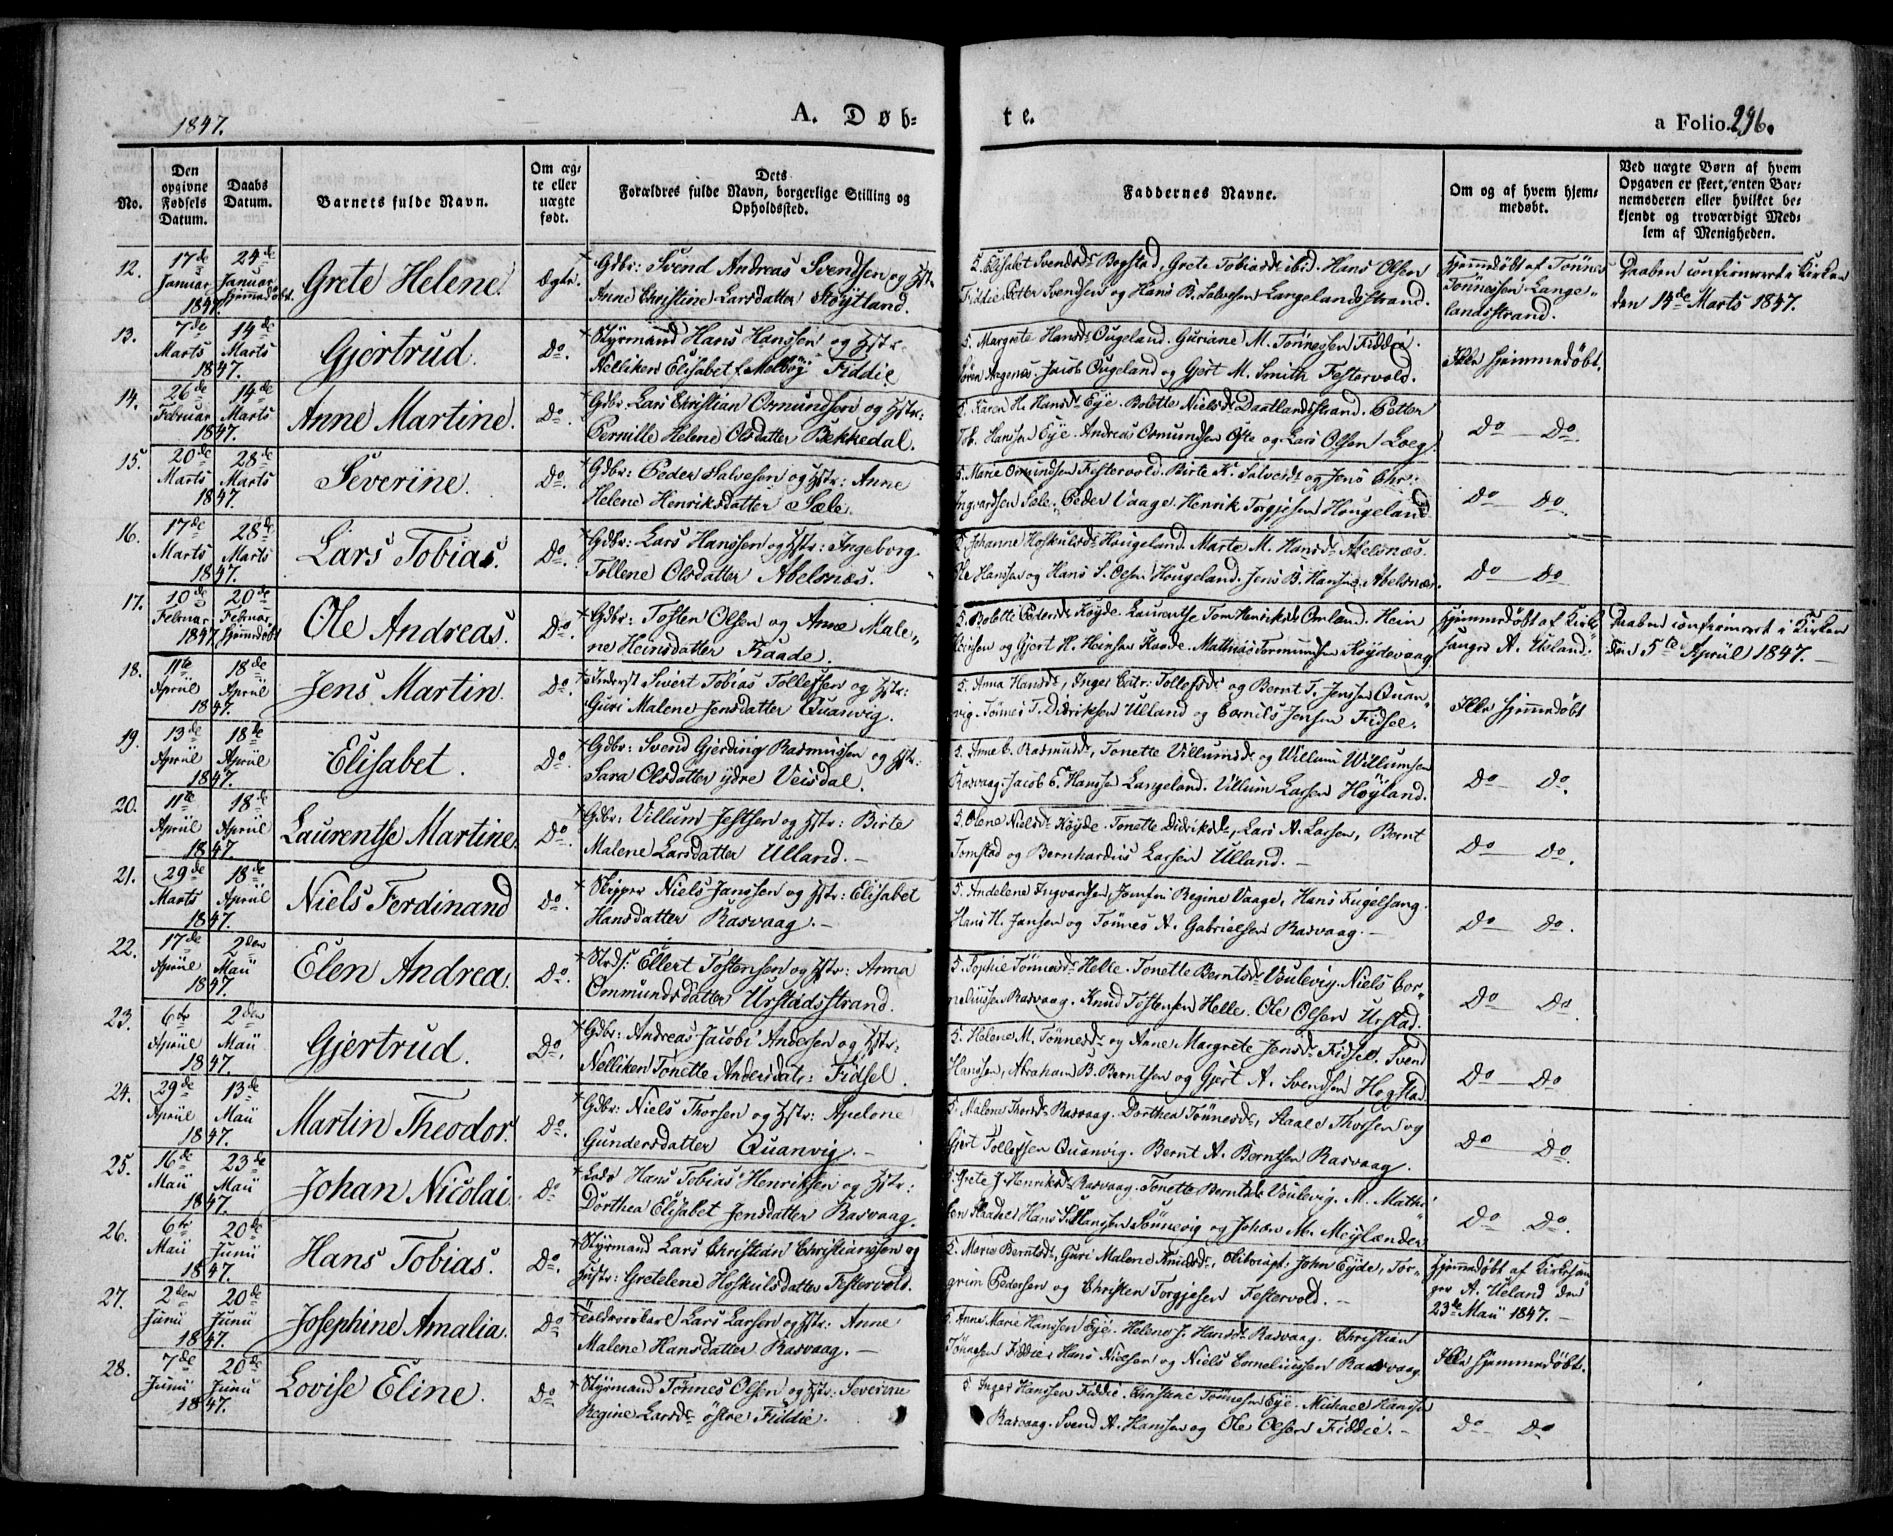 1847.
A. Døb-
te.
a Folio 296.
No.
Den opgivne Fødsels Datum.
Daabs Datum.
Barnets fulde Navn.
Om ægte eller uægte født.
Dets Forældres fulde Navn, borgerlige Stilling og Opholdssted.
Faddernes Navne.
Om og af hvem hjemmedøbt.
Ved uægte Børn af hvem Opgaven er skeet, enten Barnemoderen eller hvilket bekjendt og troværdigt Medlem af Menigheden.
12. 17de Januar 1847. 24de Januar hjemmedøbt. Grete Helene. Ægte.
Gdbr: Svend Andreas Svendsen og Hst:
Anne Christine Larsdatter Høÿtland.
5. Elisabet Svendsd: Bogstad, Grete Tobiasd: ibid. Hans Olsen
Fiddie Petter Svendsen og Hans B. Salvesen Langelandsstrand.
Hjemmedøbt af Tønnes
Tönnessen Lange-
landsstrand.
Daaben confirmeret i Kirken
den 14de Marts 1847.
13. 7de Marts 1847. 14de Marts Gjertrud. Do.
Styrmand Hans Hanssen og Hstr.
Nelliken Elisabet f. Fiddie
5. Margrete Hansd: Ougeland. Guriane M. Tønnesen Fiddie.
Jacob Ougeland og Gjert M. Smith Festervold.
Ikke hjemmedøbt.
14. 26de Februar 1847. 14de Marts Anne Martine. Do.
Gdbr: Lars Christian Osmundsen og Hstr:
Pernille Helene Olsdatter Bekkedal.
5. Karen H. Hansd: Eÿe. Bolette Nielsd: Daatlandstrand. Petter
Tob. Hanssen Eÿe. Andreas Osmundsen Ofte og Lars Olsen Loeg.
Do Do.
15. 20de Marts 1847. 28de Marts Severine. Do.
Gdbr: Peder Salvesen og Hstr: Anne
Helene Henriksdatter Sæle.
5. Marie Osmundsen Festervold. Birte K. Salvesd: og Jens Chr:
Ingvardsen Sæle. Peder Vaage. Henrik Torgjesen Hougeland
Do Do.
16. 17de Marts 1847. 28de Marts Lars Tobias. Do.
Gdbr: Lars Hanssen og Hstr: Ingeborg
Tollene Olsdatter Abelsnæs.
5. Johanne Hoskulsd: Hougeland. Marte M. Hansd: Abelsnæs.
Ole Hanssen og Hans S. Olsen Hougeland. Jens B. Hanssen Abelsnæs.
Do Do
17. 10de Februar 1847. 20de Februar hjemmedøbt Ole Andreas. Do.
Gdbr: Tosten Olsen og Anne Male-
ne Heinsdatter Raade.
5. Bolette Pedersd: Køÿde. Laurentse Tom Henriksd: Omland. Hein
Heinsen og Gjert H. Heinsen Raade. Mathias Tormundsen Köÿdevaag
Hjemmedøbt af Kirke-
sanger A. Ueland.
Daaben confirmeret i Kirken
den 5te Aprül 1847.
18. 11te Aprül 1847. 18de Aprül Jens Martin. Do.
Inderst Sivert Tobias Tollefsen og Hstr:
Guri Malene Jensdatter Quanvig.
5. Anna Hansd:, Inger Catr: Tollefsd: og Bernt T. Jenssen Quan-
vig. Tønnes T. Didriksen Ulland og Cornils Jensen Fidsel.
Ikke hjemmedøbt
19. 13de Aprül 1847. 18de Aprül Elisabet. Do.
Gdbr: Svend Gjerding Rasmussen og Hstr:
Sara Olsdatter ÿdre Veisdal.
5. Anne C. Rasmusd:, Tonette Villumsd: og Willum Willumsen
Rasvaag. Jacob C. Hanssen Langeland. Villum Larsen Høÿland.
Do Do.
20. 11te Aprül 1847. 18de Aprül Laurentse Martine. Do.
Gdbr: Villum Jestsen og Hstr: Birte
Malene Larsdatter Ulland.
5. Olene Nielsd: Køÿde. Tonette Didriksd:, Lars A. Larsen, Bernt
Tomstad og Bernhardus Larsen Ulland.
Do Do.
21. 29de Marts 1847. 18de Aprül Niels Ferdinand Do.
Skipper Niels Janssen og Hstr: Elisabet
Hansdatter Rasvaag.
5. Andelene Ingvardsen, Jomfru Regine Vaage, Hans Fugelsang.
Hans H. Jansen og Tønnes A. Gabrielsen Rasvaag.
Do Do.
22. 17de Aprül 1847. 2den Maü Elen Andrea. Do.
Strds: Ellert Tostensen og Hstr: Anna
Ommundsdatter Urstadsstrand.
5. Sophie Tönnesd: Helle. Tonette Berntsd: Voulevig. Niels Cor-
neliussen Rasvaag. Knud Tostensen Helle. Ole Olsen Urstad.
Do Do.
23. 6te Aprül 1847. 2den Maü Gjertrud. Do.
Gdbr: Andreas Jacobi Andersen og Hstr:
Nelliken Tonette Andersdatr: Fidsel.
5. Helene M. Tönnesd: og Anne Margrete Jensd: Fidsel. Svend
Hanssen, Abraham B. Berntsen og Gjert A. Svendsen Hogstad
Do Do
24. 29de Aprül 1847. 13de Maü Martin Theodor. Do.
Gdbr: Niels Thorsen og Hstr: Apelone
Gundersdatter Quanvig.
5. Malene Thorsd: Rasvaag. Dorthea Tönnesd:, Staale Thorsen og
Gjert Tollefsen Quanvig. Bernt A. Berntsen Rasvaag.
Do Do.
25. 16de Maü 1847. 23de Maü Johan Nicolai. Do
Lods Hans Tobias Henriksen og Hstr:
Dorthea Elisabet Jensdatter Rasvaag.
5. Grete J. Henriksd: Rasvaag. Tonette Berntsd: Voulevig. M. Mathi-
sen Raade Hans S. Hanssen Sönnevig og Johan M. Meÿlænder
Do Do.
26. 6te Maü 1847. 20de Junü Hans Tobias. Do.
Styrmand Lars Christian Christianssen og
Hustr: Gretelene Hoskulsdatter Festervold.
5. Marie Berntsd:, Guri Malene Knudsd:, John Eÿde, Tor-
grim Pedersen og Christen Torgjesen Festervold.
Hjemmedøbt af Kirkesan-
ger A. Ueland den
23de Maü 1847.
27. 2den Junü 1847. 20de Junü Josephine Amalia. Do
Lars Larsen og Hstr: Anne
Malene Hansdatter Rasvaag.
5. Anne Marie Hanssen Eÿe. Helene J. Hansd: Rasvaag. Christian
Tönnesen Fiddie, Hans Nielsen og Niels Corneliussen Rasvaag.
Ikke hjemmedøbt.
28. 7de Junü 1847. 20de Junü Lovise Eline. Do
Styrmand Tönnes Olsen og Hstr: Severine
Regine Larsd: östre Fiddie.
5. Inger Hanssen Fiddie. Christine Tönnesen Eÿe. Michael Hanssen
Rasvaag. Svend A. Hanssen og Ole Olsen Fiddie.
Do Do